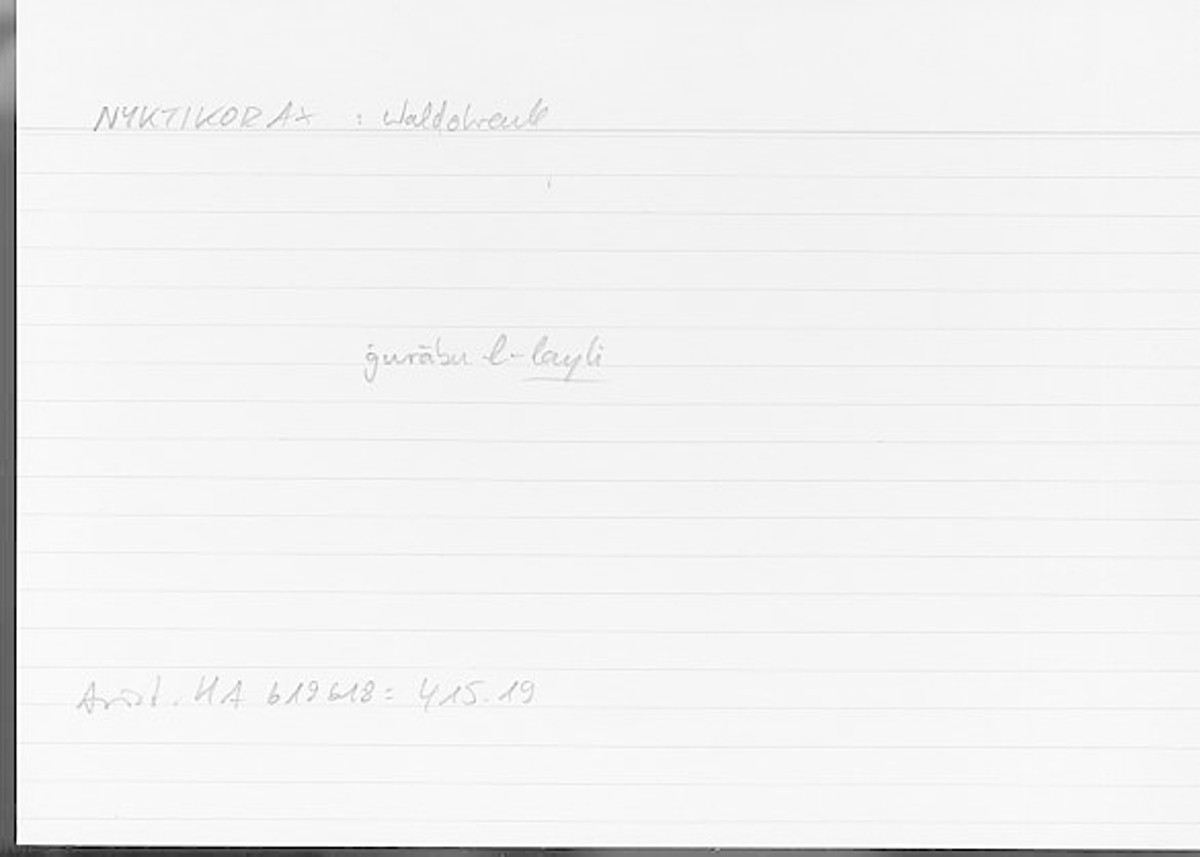 NYKTIKORAX : Waldohreule
ġurābu l-layli
Arist. HA 619b18 = 415.19